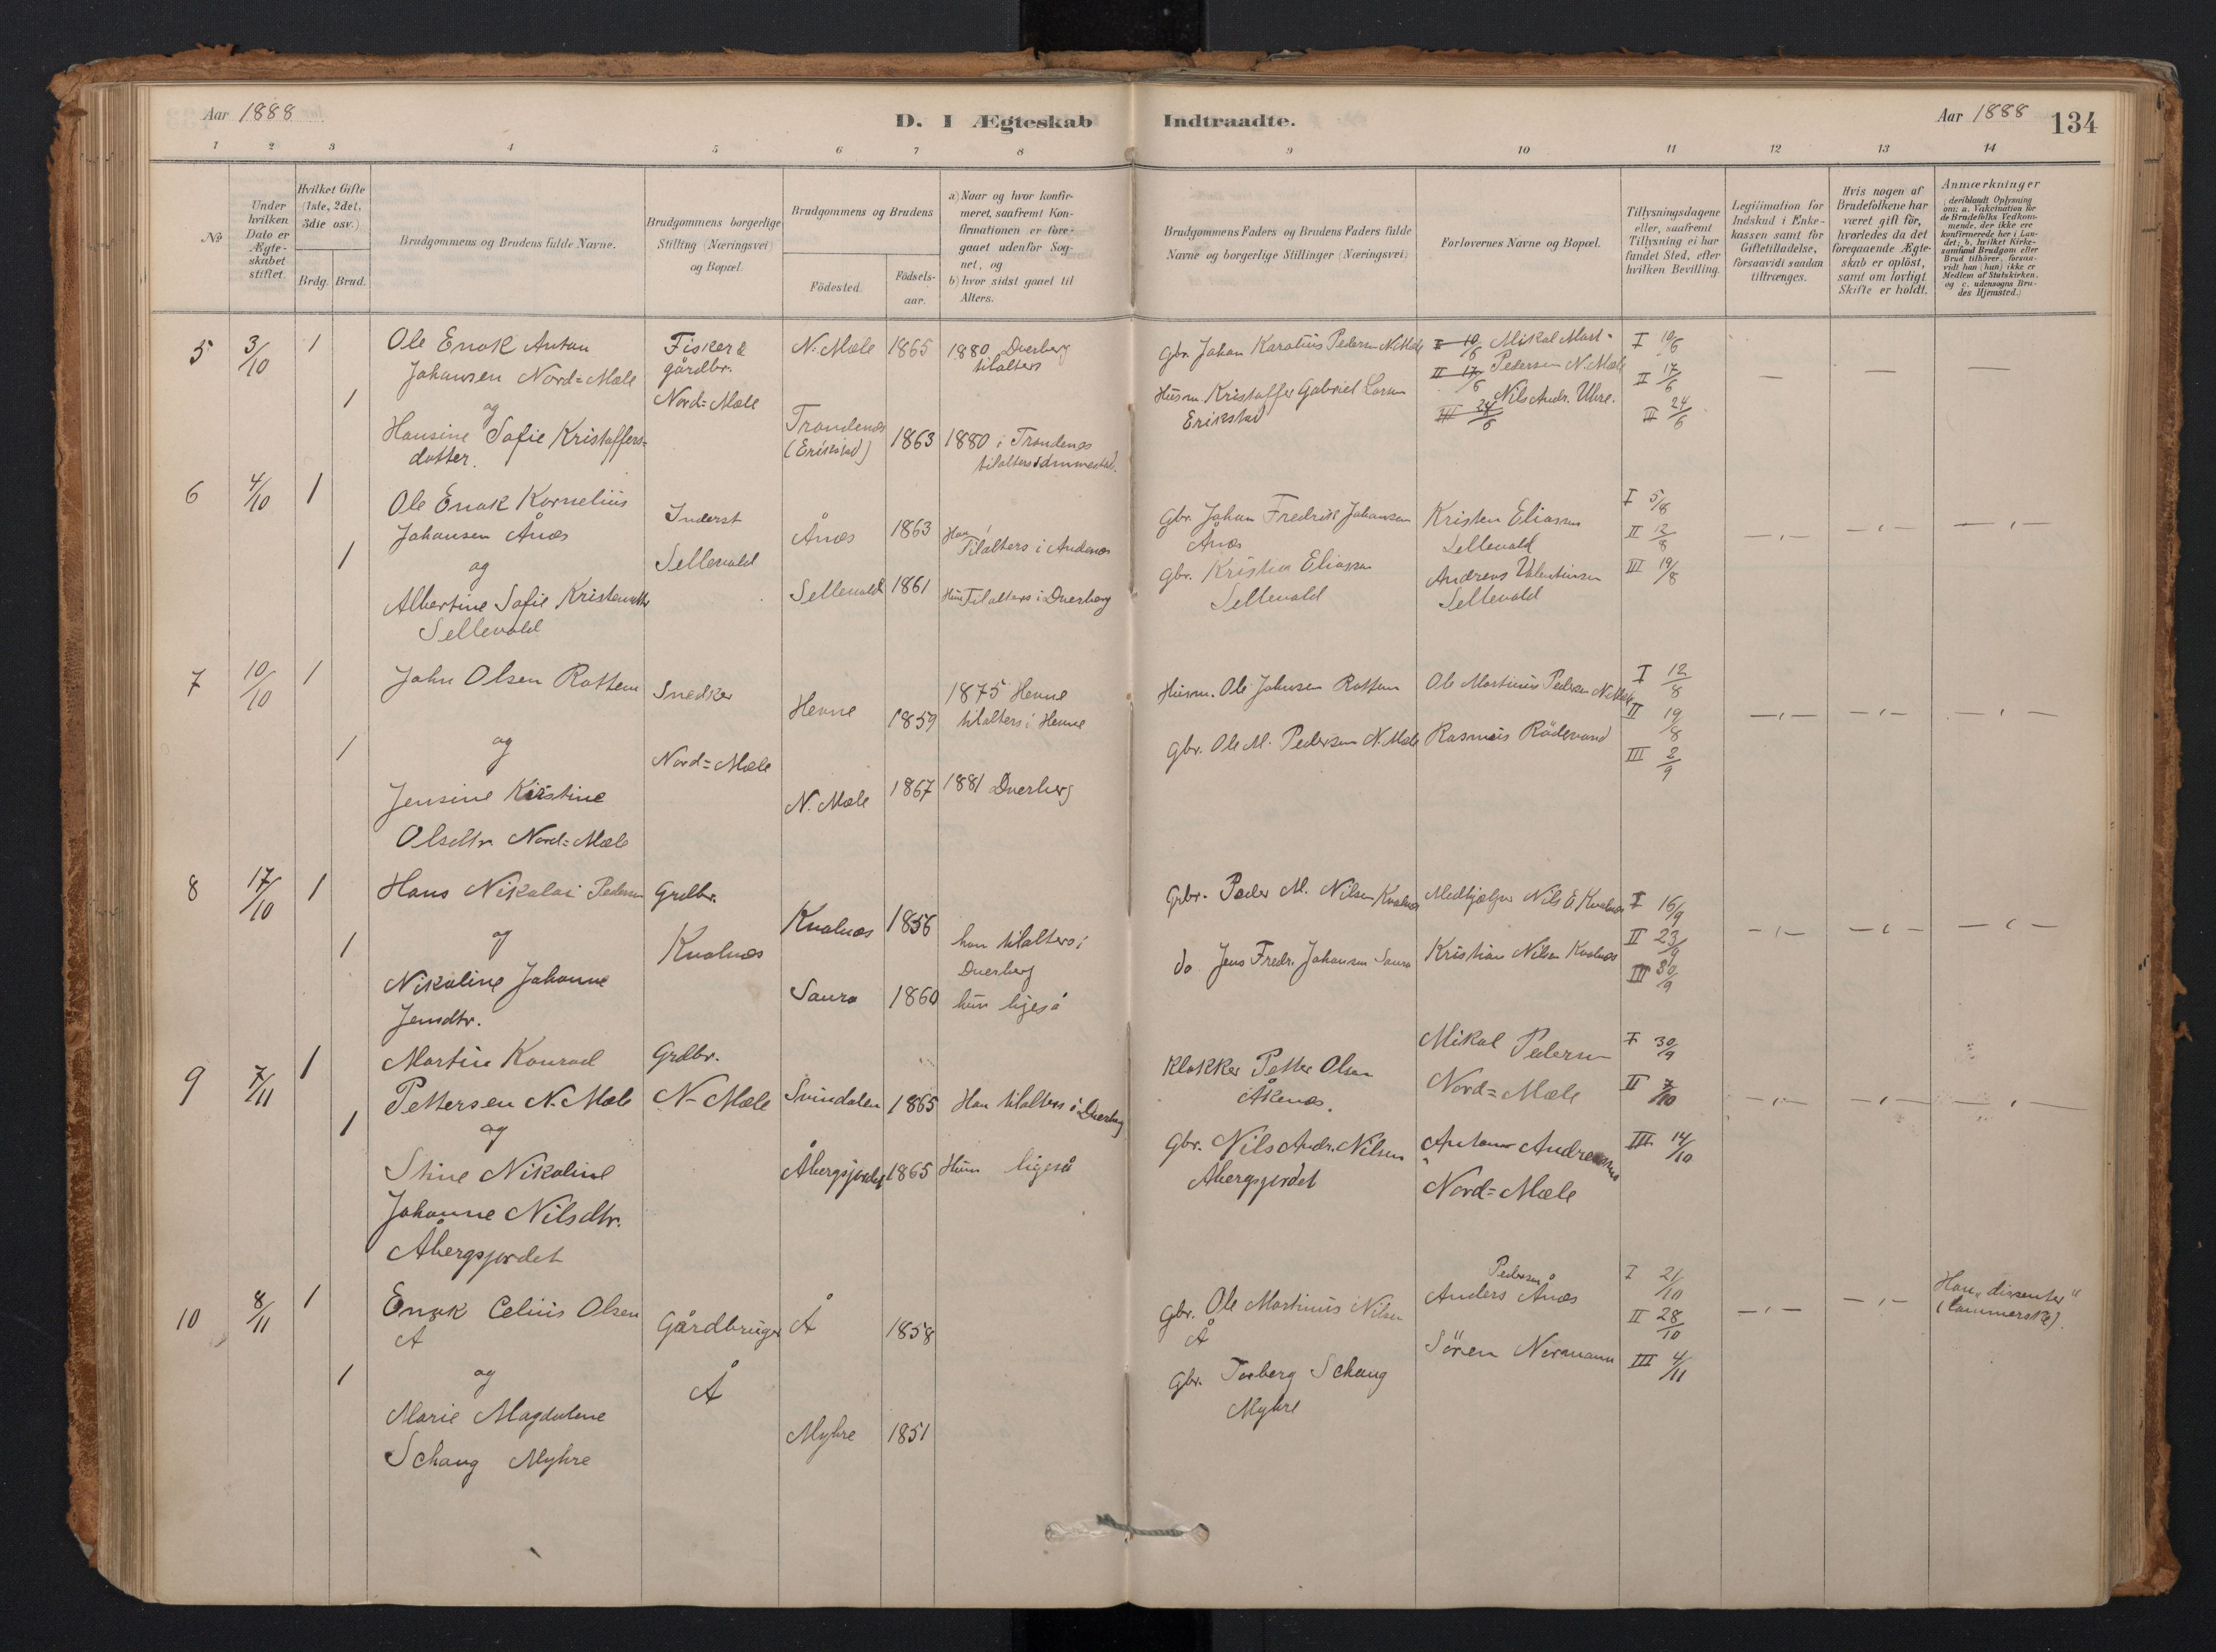 Aar 1888
D. I Ægteskab Indtraadte.
Aar 1888
134
1 2 3 4 5 6 7 8 9 10 11 12 13 14
No
Under hvilken Dato er Ægteskabet stiftet.
Hvilket Gifte (1ste, 2det, 3die osv.)
Brdg. Brud.
Brudgommens og Brudens fulde Navne.
Brudgommens borgerlige Stilling (Næringsvei) og Bopæl.
Brudgommens og Brudens
Födested. Födsels-aar.
a) Naar og hvor konfirmeret, saafremt Konfirmationen er foregaaet udenfor Sognet, og
b) hvor sidst gaaet til Alters.
Brudgommens Faders og Brudens Faders fulde Navne og borgerlige Stillinger (Næringsvei)
Forlovernes Navne og Bopæl.
Tillysningsdagene eller, saafremt Tillysning ei har fundet Sted, efter hvilken Bevilling.
Legitimation for Indskud i Enkekassen samt for Giftetilladelse, forsaavidt saadan tiltrænges.
Hvis nogen af Brudefolkene har været gift för, hvorledes da det foregaaende Ægteskab er oplöst, samt om lovligt Skifte er holdt.
Anmærkninger
(deriblandt Oplysning om: a. Vakcination for de Brudefolks Vedkommende, der ikke ere konfirmerede her i Landet; b. hvilket Kirkesamfund Brudgom eller Brud tilhörer, forsaavidt han (hun) ikke er Medlem af Statskirken, og c. udensogns Brudes Hjemsted.)
5 3/10 1
Ole Enok Anton
Johansen Nord=Mæle
1 og
Hansine Sofie Kristoffers-
datter.
Fisker &
gårdbr.
Nord=Mæle
N.Mæle 1865 1880 Dverberg
tilalters
Trondenæs
(Erikstad) 1863 1880 i Trondenæs
tilalters sammested.
Gbr. Johan Karatius Pedersen N.Mæle
Husm. Kristoffer Gabriel Larsen
Erikstad
I 10/6 Mikal Mart-
II 17/6 Pedersen N.Mæle
Nils Andr. Uhre.
III 24/6
I 10/6
II 17/6
II 24/6
6 4/10 1
Ole Enok Kornelius
Johansen Ånæs
1 og
Albertine Sofie Kristensdtr
Sellevold
Inderst
Sellevold
Ånæs 1863 Han Tilalters i Andenæs
Sellevold 1861 Hun Tilalters i Dverberg
Gbr. Johan Fredrik Johansen
Ånæs
Gbr. Kristen Eliassen
Sellevold
Kristen Eliassen
Sellevold
Andreas Valentinsen
Sellevold
I 5/8
II 12/8
III 19/8
7 10/10 1
John Olsen Rottem
1 og
Jensine Kristine
Olsdtr. Nord=Mæle
Snedker
Nord=Mæle
Hevne 1859 1875 Hevne
tilalters i Hevne
N.Mæle 1867 1881 Dverberg
Husm. Ole Johnsen Rottem
Gbr. Ole M. Pedersen N.Mæle
Ole Martinius Pedersen N.Mæle
Rasmus Rödevand
I 12/8
II 19/8
III 2/9
8 17/10 1
Hans Nikolai Pedersen
1 og
Nikoline Johanne
Jensdtr.
Grdbr.
Kvalnæs
Kvalnæs 1856 han tilalters i
Dverberg
Saura 1860 hun ligeså
Gbr. Peder M. Nilsen Kvalnæs
do. Jens Fredr. Johansen Saura
Medhjælper Nils E. Kvalnæs
Kristian Nilsen Kvalnæs
I 16/9
II 23/9
III 30/9
9 7/11 1
Martin Konrad
Pettersen N.Mæle
1 og
Stine Nikoline
Johanne Nilsdtr.
Åbergsjordet
Grdbr.
N-Mæle
Svindalen 1865 Han tilalters i Dverberg
Åbergsjordet 1865 Hun ligeså
Klokker Petter Olsen
Åkenæs.
Gbr. Nils Andr. Nilsen
Åbergsjordet
Mikal Pedersen
Nord=Mæle
Anton Andreassen
Nord=Mæle
I 30/9
II 7/10
III 14/10
10 8/11 1
Enok Celius Olsen
Å
1 og
Marie Magdalene
Schaug Myhre
Gårdbruger
Å
Å 1858
Myhre 1851
Gbr. Ole Martinius Nilsen
Å
Gbr. Torberg Schaug
Myhre
Pedersen
Anders Ånæs
Sören Normann
I 21/10
II 28/10
III 4/11
Han „dissenter"
(Lammersk).